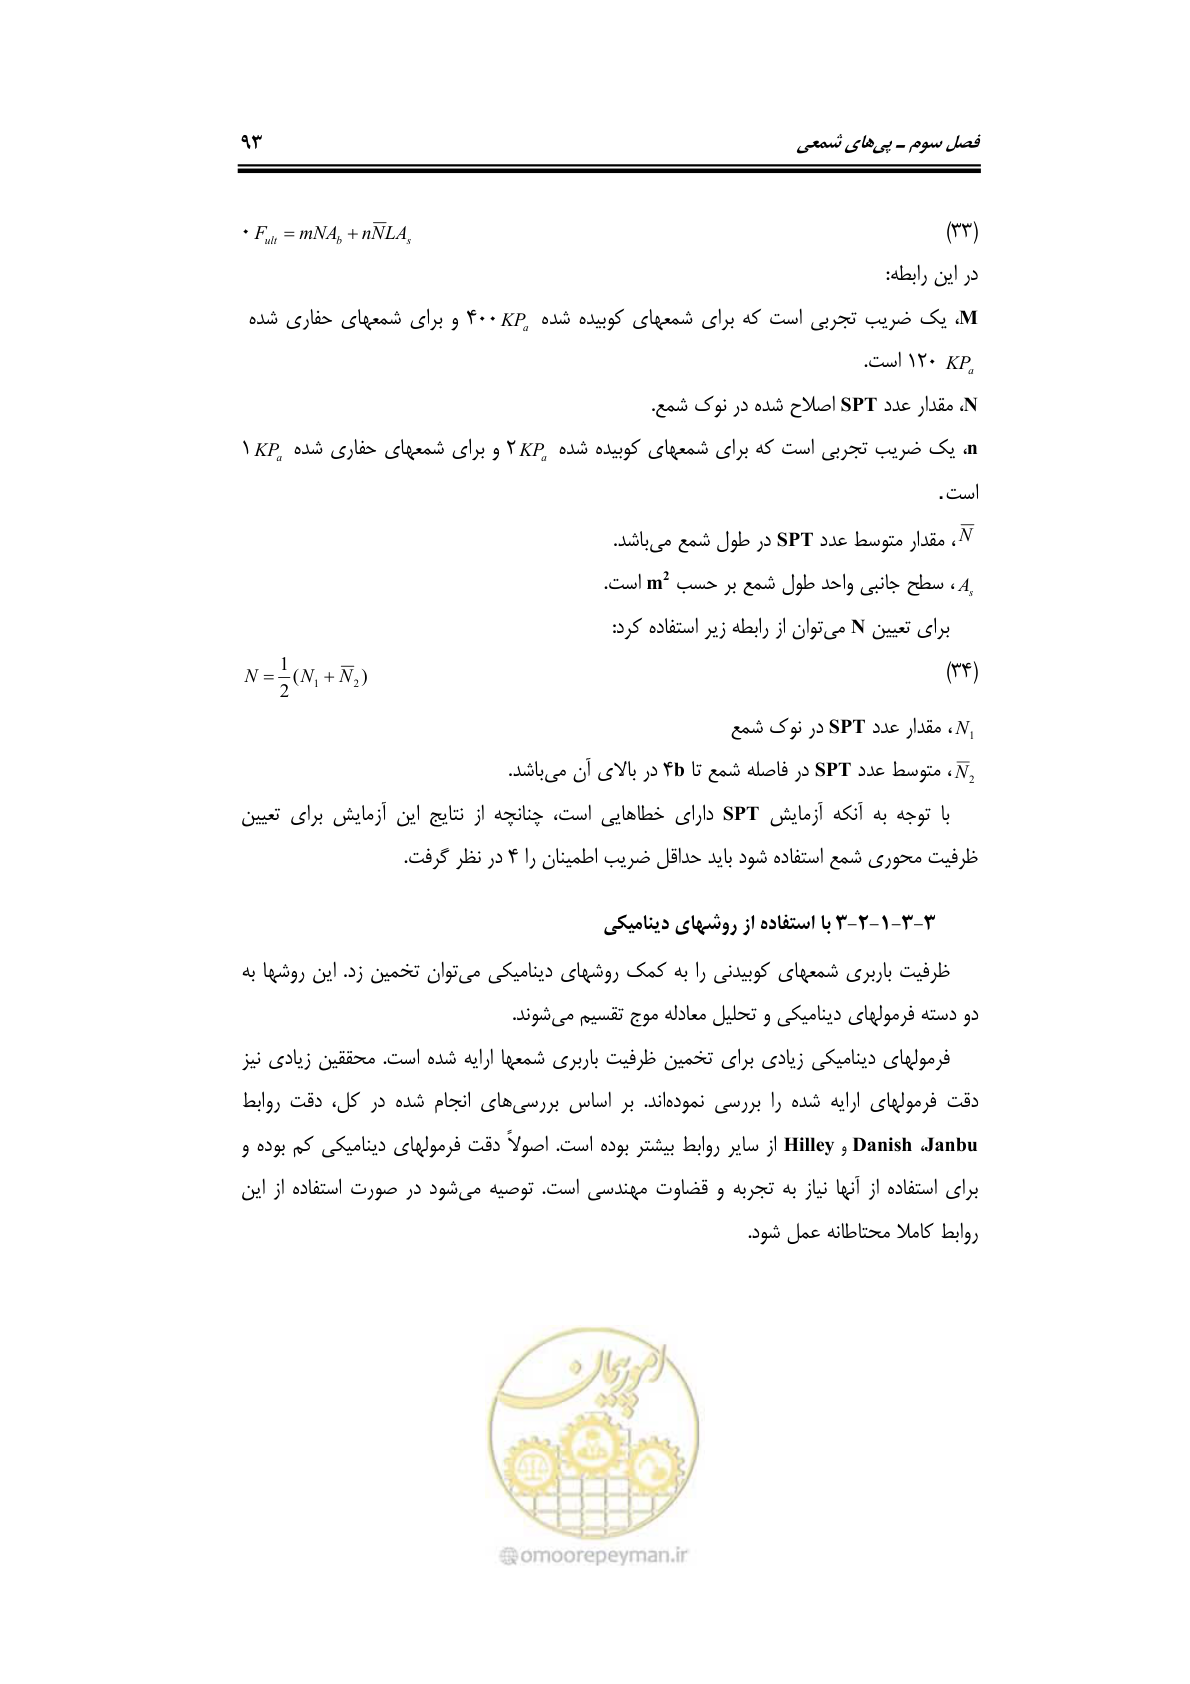 فصل سوم ـ پی‌های شمعی ۹۳
(۳۳) $F_{ult} = mNA_b + n\overline{N}LA_s$ ۰
در این رابطه:
M، یک ضریب تجربی است که برای شمعهای کوبیده شده ۴۰۰ $KP_a$ و برای شمعهای حفاری شده
۱۲۰ $KP_a$ است.
N، مقدار عدد SPT اصلاح شده در نوک شمع.
n، یک ضریب تجربی است که برای شمعهای کوبیده شده ۲ $KP_a$ و برای شمعهای حفاری شده ۱ $KP_a$
است.
$\overline{N}$، مقدار متوسط عدد SPT در طول شمع می‌باشد.
$A_s$، سطح جانبی واحد طول شمع بر حسب m² است.
برای تعیین N می‌توان از رابطه زیر استفاده کرد:
(۳۴) $N = \frac{1}{2}(N_1 + \overline{N}_2)$
$N_1$، مقدار عدد SPT در نوک شمع
$\overline{N}_2$، متوسط عدد SPT در فاصله شمع تا ۴b در بالای آن می‌باشد.
با توجه به آنکه آزمایش SPT دارای خطاهایی است، چنانچه از نتایج این آزمایش برای تعیین
ظرفیت محوری شمع استفاده شود باید حداقل ضریب اطمینان را ۴ در نظر گرفت.
۳-۳-۱-۲-۳ با استفاده از روشهای دینامیکی
ظرفیت باربری شمعهای کوبیدنی را به کمک روشهای دینامیکی می‌توان تخمین زد. این روشها به
دو دسته فرمولهای دینامیکی و تحلیل معادله موج تقسیم می‌شوند.
فرمولهای دینامیکی زیادی برای تخمین ظرفیت باربری شمعها ارایه شده است. محققین زیادی نیز
دقت فرمولهای ارایه شده را بررسی نموده‌اند. بر اساس بررسی‌های انجام شده در کل، دقت روابط
Janbu، Danish و Hilley از سایر روابط بیشتر بوده است. اصولاً دقت فرمولهای دینامیکی کم بوده و
برای استفاده از آنها نیاز به تجربه و قضاوت مهندسی است. توصیه می‌شود در صورت استفاده از این
روابط کاملا محتاطانه عمل شود.
امور پیمان
omoorepeyman.ir